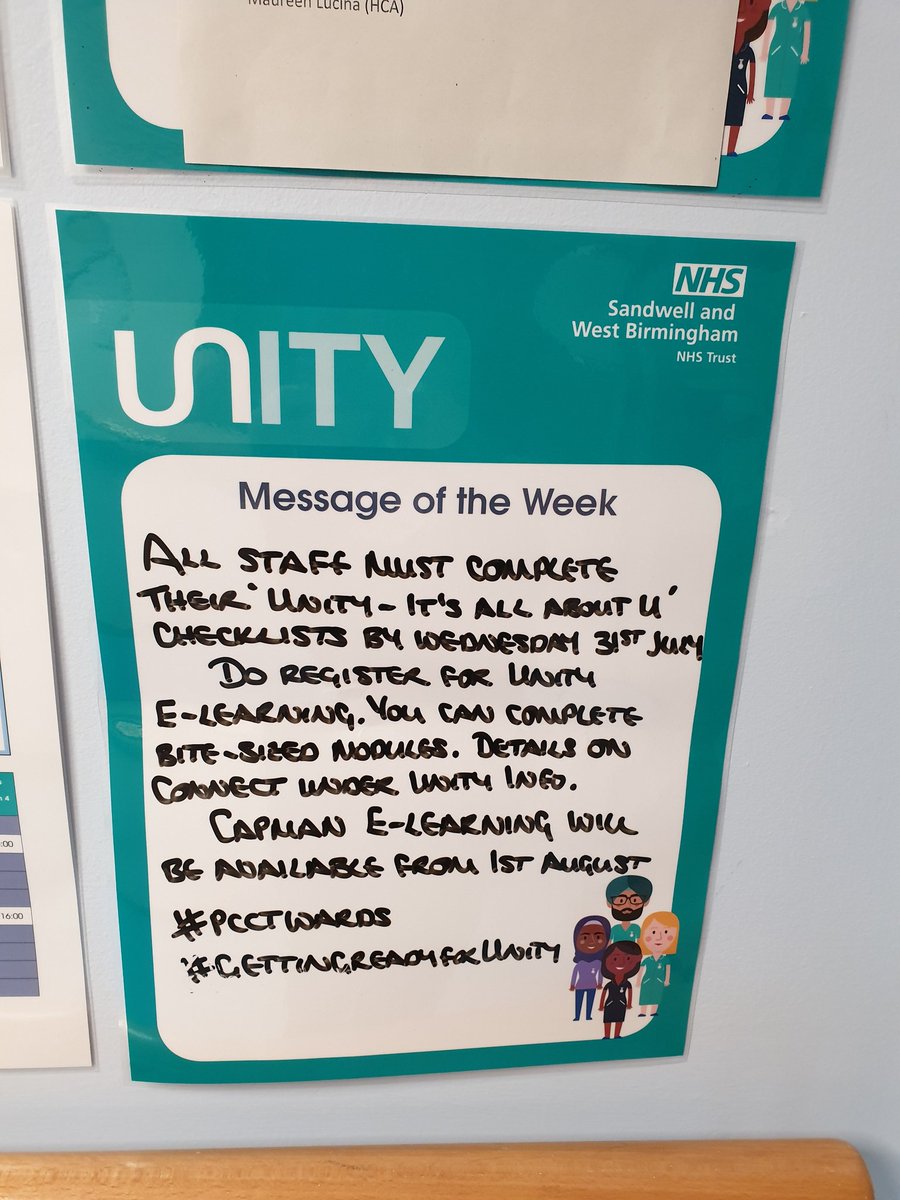 Maureen Lucina (HCA)
NHS
Sandwell and
West Birmingham
NHS Trust
UNITY
Message of the Week
ALL STAFF MUST COMPLETE
THEIR 'UNITY - IT'S ALL ABOUT U'
CHECKLISTS BY WEDNESDAY 31ST JULY
DO REGISTER FOR UNITY
E-LEARNING. YOU CAN COMPLETE
BITE-SIZED MODULES. DETAILS ON
CONNECT UNDER UNITY INFO.
CAPMAN E-LEARNING WILL
BE AVAILABLE FROM 1ST AUGUST
#PCCTWARDS
#GETTINGREADYFORUNITY
:00
16:00